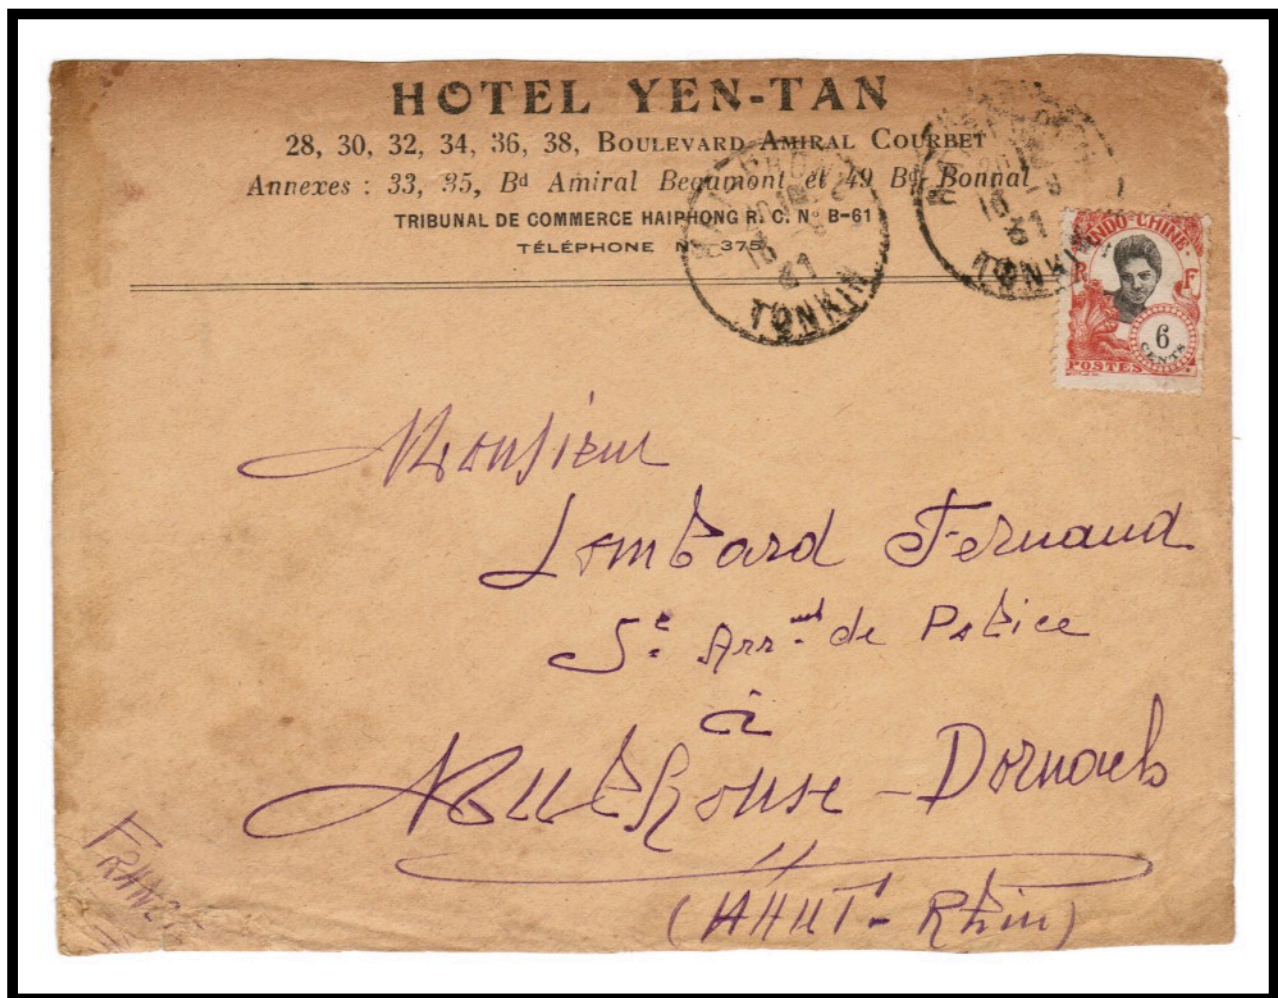 HOTEL YEN-TAN
28, 30, 32, 34, 36, 38, BOULEVARD AMIRAL COURBET
Annexes : 33, 35, Bd Amiral Beaumont et 49 Bd Bonnal
TRIBUNAL DE COMMERCE HAIPHONG R. C. No B-61
TÉLÉPHONE No 375
TONKIN
TONKIN
INDO-CHINE
R F
6
CENTS
POSTES
Monsieur
Lombard Fernand
5e Arr.mt de Police
à
Mulhouse - Dornach
(Haut-Rhin)
FRANCE